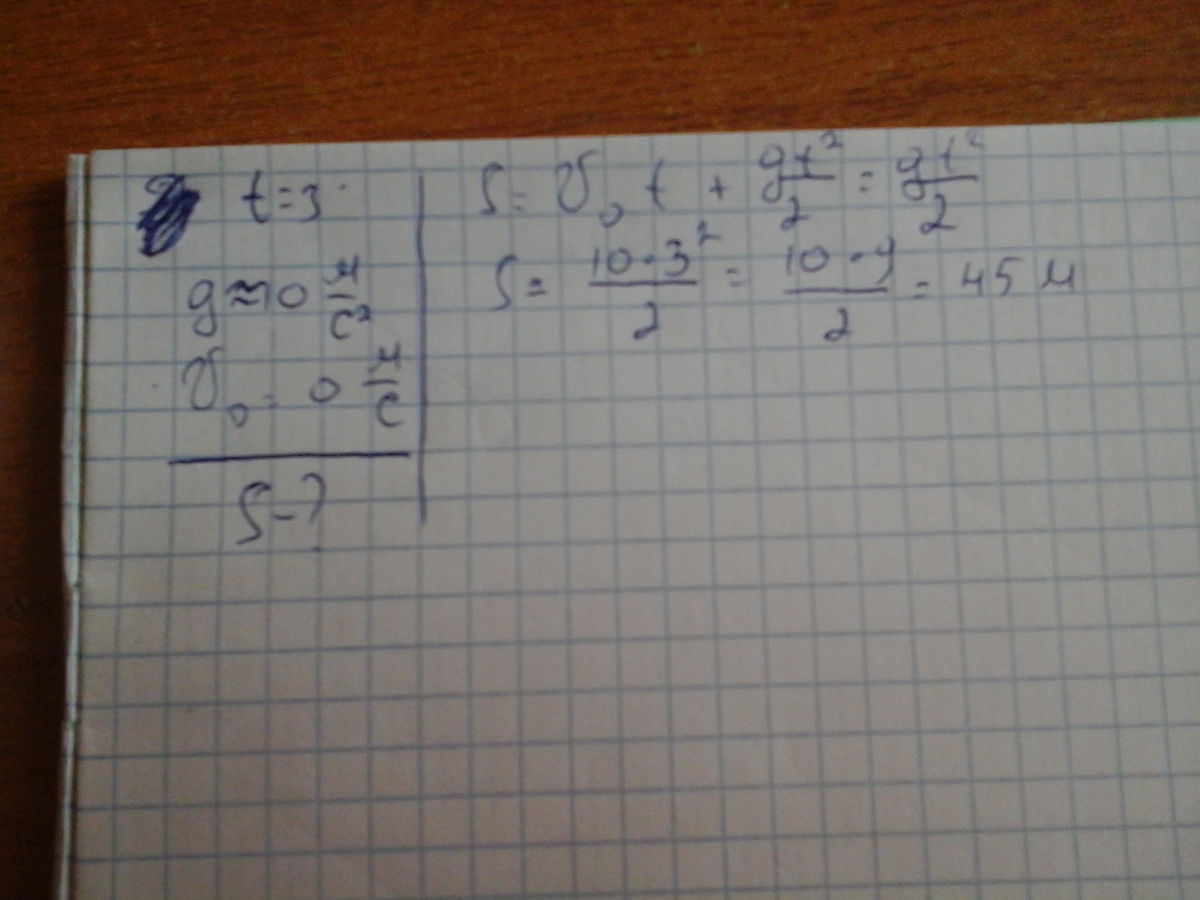 t = 3
g ≈ 10 м/с²
υ₀ = 0 м/с
S - ?
S = υ₀ t + gt²/2 = gt²/2
S = 10 · 3²/2 = 10 · 9/2 = 45 м